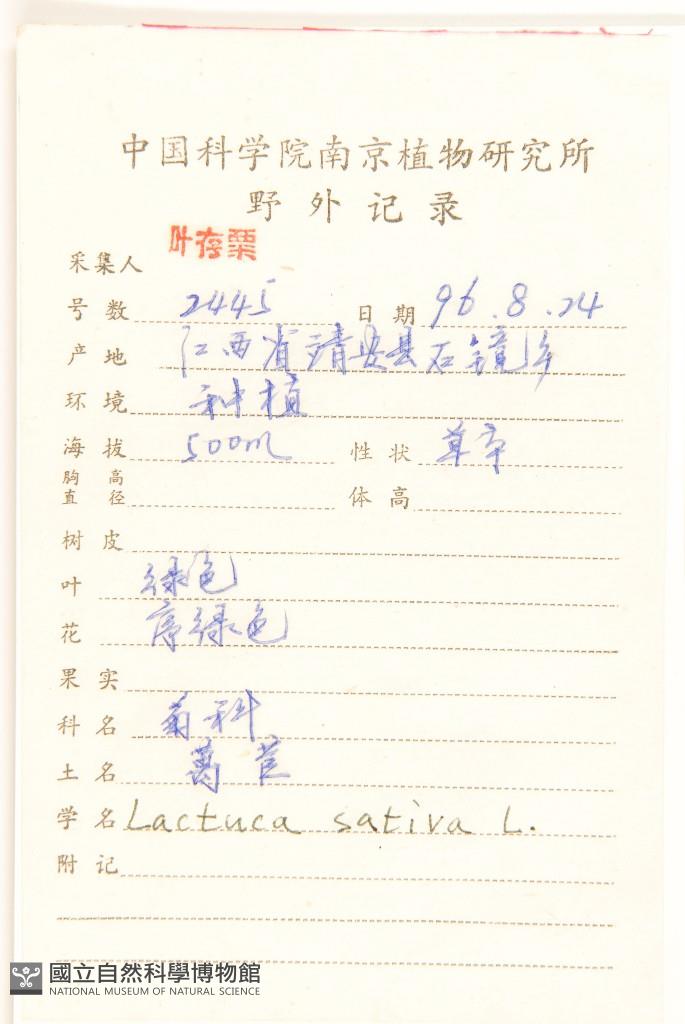 中国科学院南京植物研究所
野外记录
采集人 叶存粟
号数 2445 日期 96.8.24
产地 江西省靖安县石镜乡
环境 种植
海拔 500m 性状 草本
胸高直径 体高
树皮
叶 绿色
花 序绿色
果实
科名 菊科
土名 莴苣
学名 Lactuca sativa L.
附记
國立自然科學博物館
NATIONAL MUSEUM OF NATURAL SCIENCE